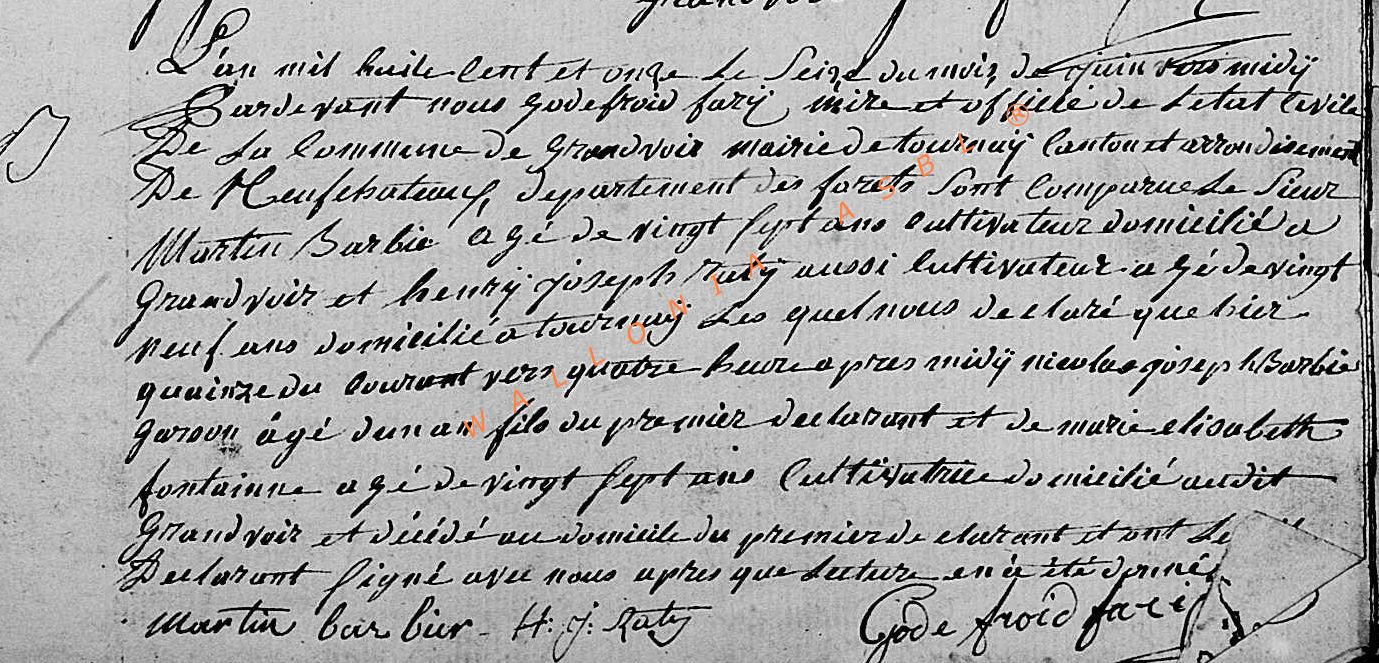 L'an mil huite Cent et onze Le Seize du mois de juin vers midÿ
Pardevant nous godefroid farÿ maire et officié de L'etat Civile
De La Commune de Grandvoir mairie de tournaÿ Canton et arrondisement
De Neufchateau, departement des forets Sont Comparue Le Sieur
Martin Barbie agé de vingt Sept ans Cultivateur domicilié a
Grandvoir et henrÿ joseph Ratÿ aussi Cultivateur agé de vingt
neuf ans domicilié a tournaÿ Les quel nous declaré que hier
quainze du Courant vers quatre heure apres midÿ nicolas joseph Barbie
garson âgé dun an fils du premier declarant et de marie elisabeth
fontainne agé de vingt Sept ans Cultivatrice domicilié audit
Grandvoir et décédé au domicile du premier declarant et ont Le
Declarant Signé avec nous apres que Lecture en a été donné
Martin barbier H: J: Ratÿ Gode froid fari
WALLONIA ASBL ®